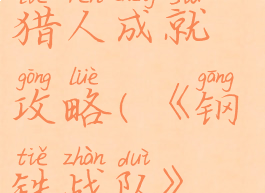 猎人成就
gōng lüè gāng
攻略(《钢
tiě zhàn duì
铁战队》